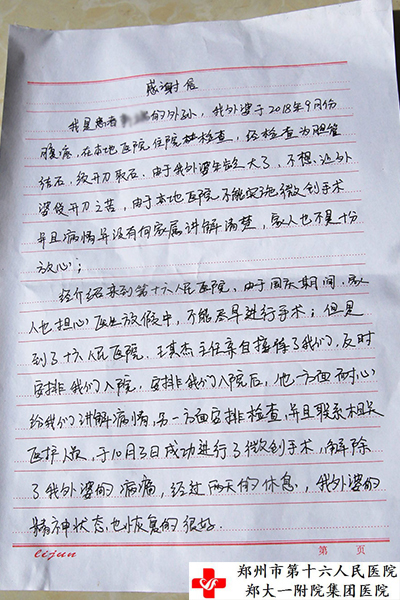 感谢信
我是患者的外孙，我外婆于2018年9月份
腹痛，在本地医院住院检查，经检查为胆管
结石，须开刀取石。由于我外婆年龄大了，不想让外
婆受开刀之苦，由于本地医院不能实施微创手术
并且病情并没有向家属讲解清楚，家人也不是十份
放心；
经介绍来到第十六人民医院，由于国庆期间，家
人也担心医生放假中，不能尽早进行手术；但是
到了十六人民医院，王其杰主任亲自接待了我们，及时
安排我们入院，安排我们入院后，他一方面耐心
给我们讲解病情，另一方面安排检查，并且联系相关
医护人员，于10月3日成功进行了微创手术，解除
了我外婆的病痛，经过两天的休息，我外婆的
精神状态也恢复的很好.
lijun 第 页
郑州市第十六人民医院
郑大一附院集团医院